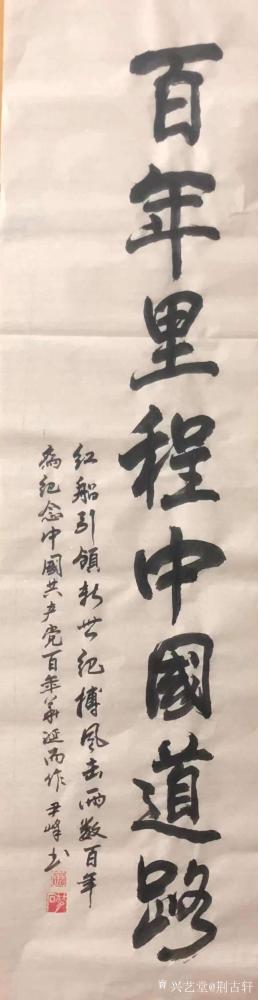 百年里程中國道路
红船引領新世纪搏风击雨数百年
為纪念中國共产党百年華诞而作 尹峰书
兴艺堂@荆古轩